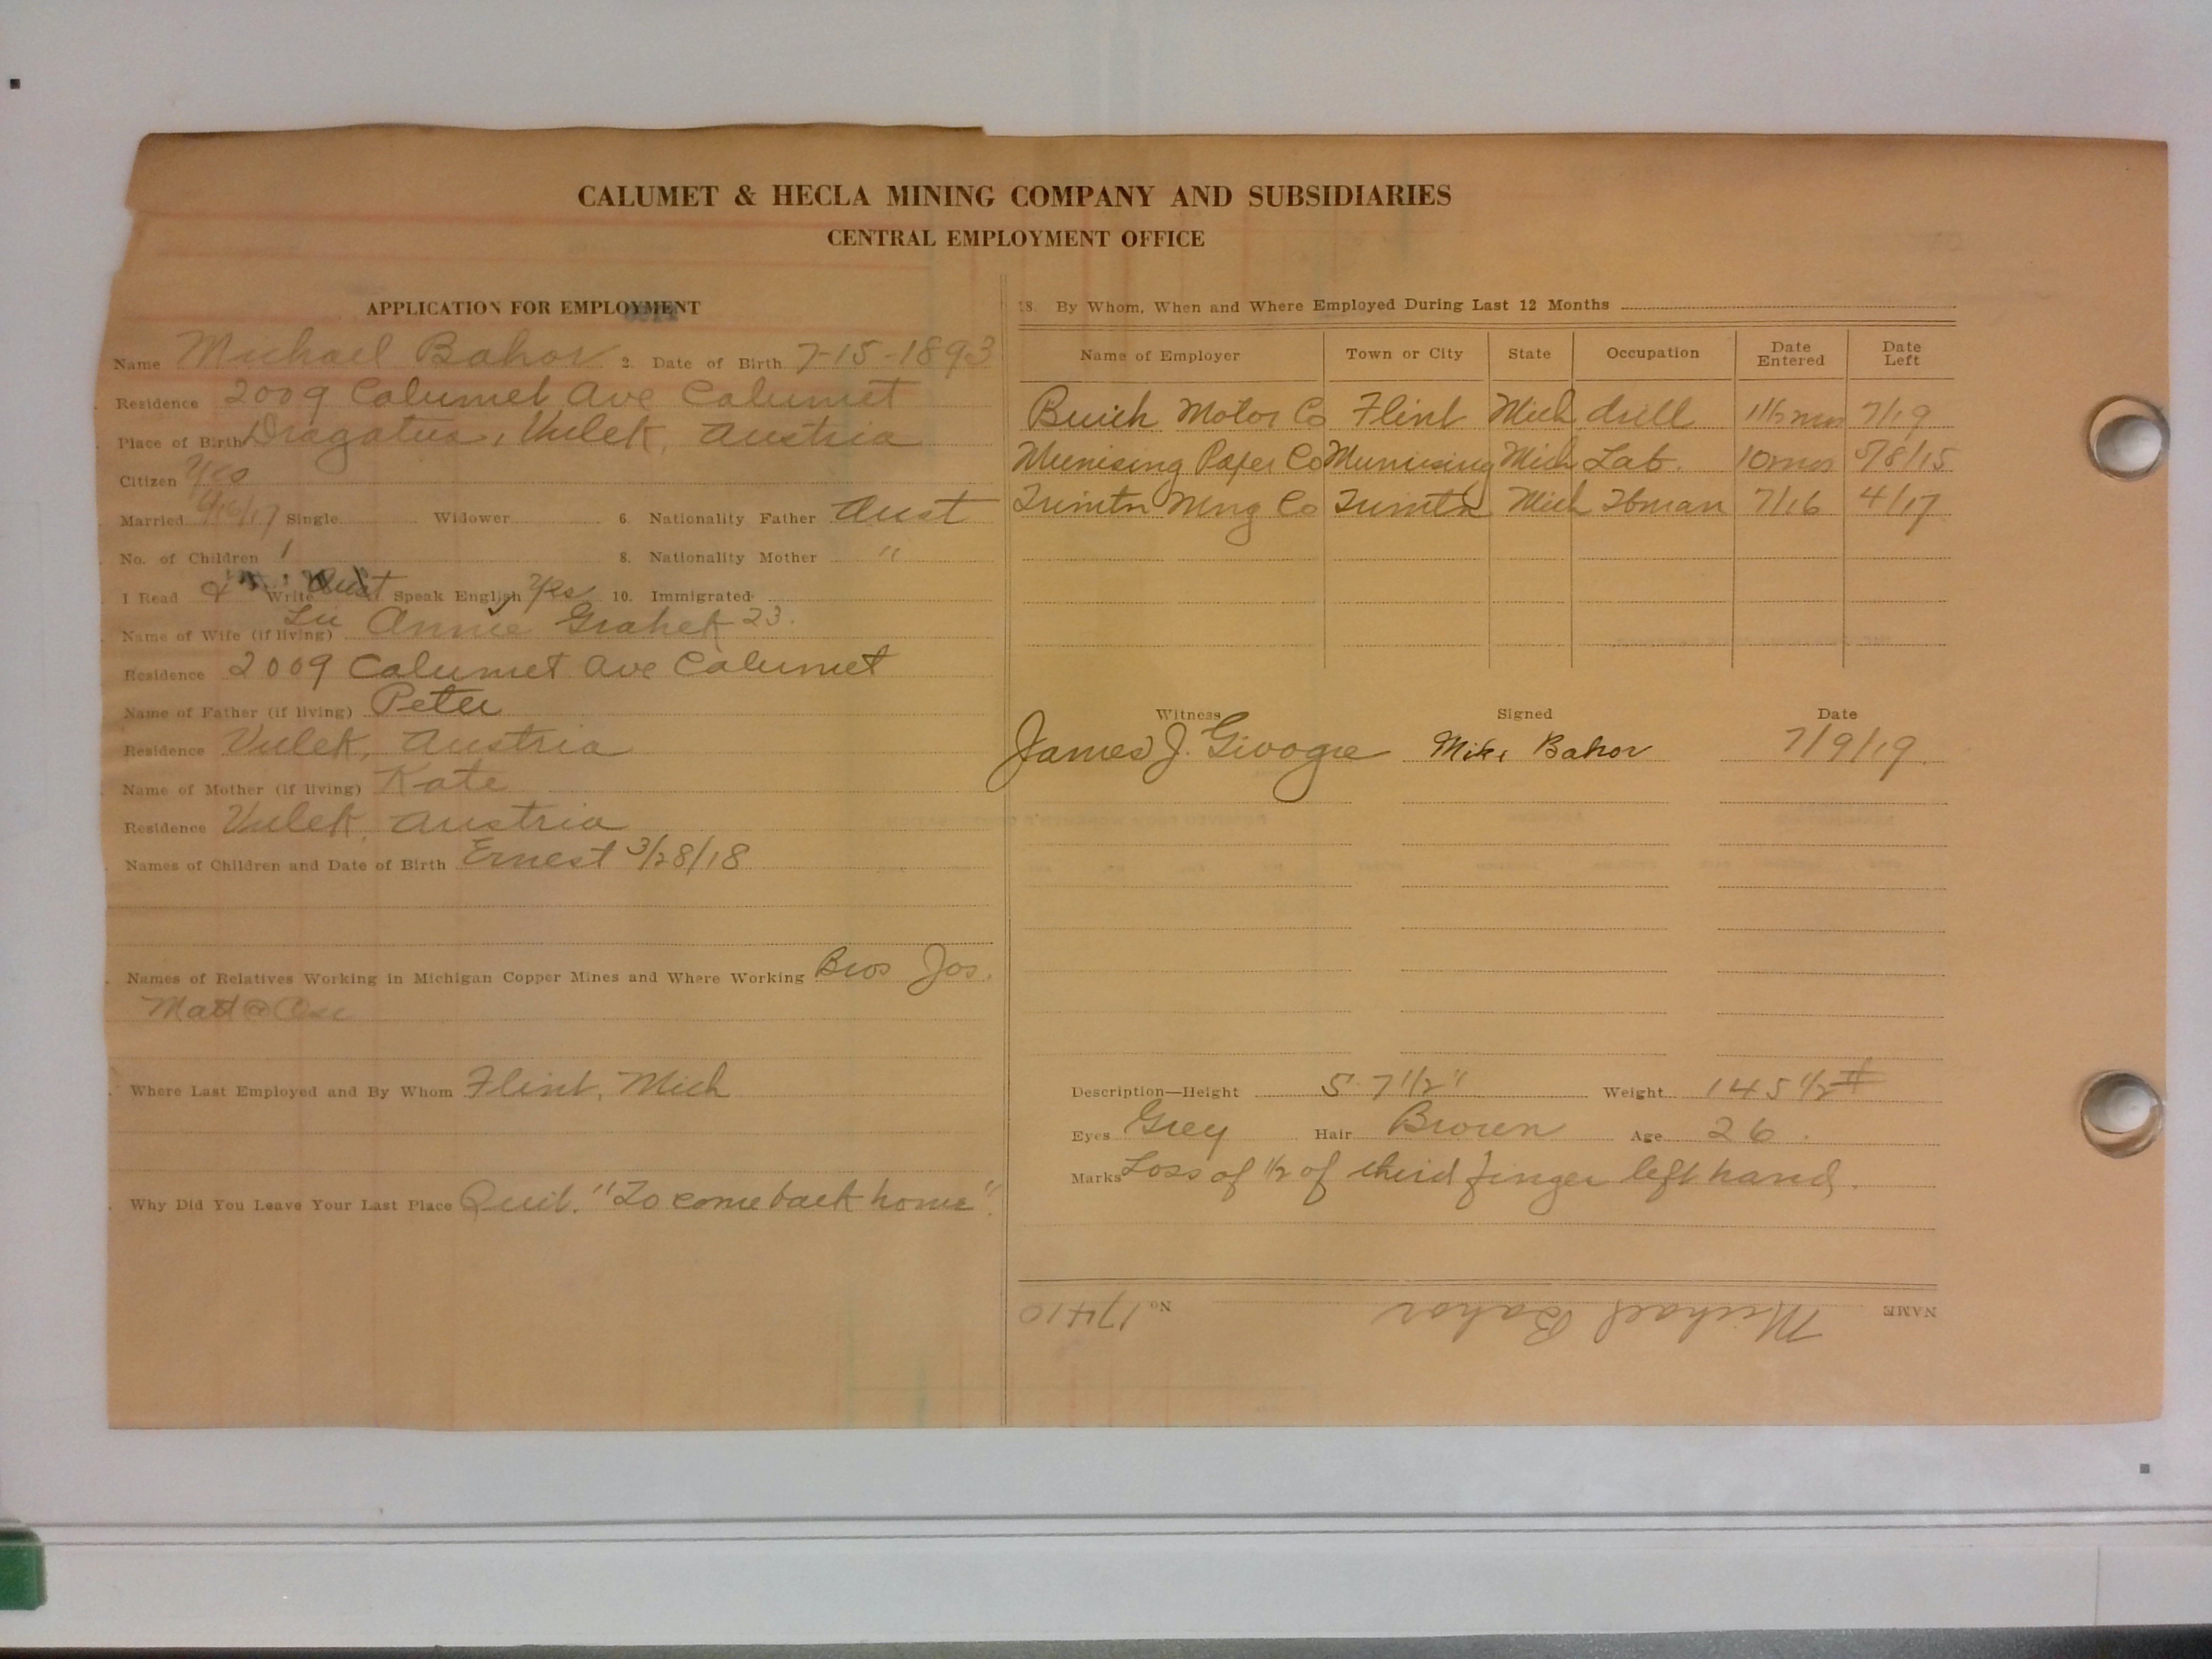 CALUMET & HECLA MINING COMPANY AND SUBSIDIARIES
CENTRAL EMPLOYMENT OFFICE
APPLICATION FOR EMPLOYMENT
Name Michael Bahor 2. Date of Birth 7-15-1893
Residence 2009 Calumet Ave Calumet
Place of Birth Dragatus, Vulek, Austria
Citizen Yes
Married 6/16/17 Single Widower 6. Nationality Father Aust
No. of Children 1 8. Nationality Mother "
I Read & Write Aust Speak English Yes 10. Immigrated
Name of Wife (if living) Annie Grahek 23.
Residence 2009 Calumet Ave Calumet
Name of Father (if living) Peter
Residence Vulek, Austria
Name of Mother (if living) Kate
Residence Vulek, Austria
Names of Children and Date of Birth Ernest 3/28/18
Names of Relatives Working in Michigan Copper Mines and Where Working Bros Jos.
Matt @ Osc
Where Last Employed and By Whom Flint, Mich
Why Did You Leave Your Last Place Quit. "To come back home".
18. By Whom, When and Where Employed During Last 12 Months
Name of Employer Town or City State Occupation Date Entered Date Left
Buick Motor Co Flint Mich drill 1½ mos 7/19
Munising Paper Co Munising Mich Lab. 10 mos 5/8/15
Trimtn Mng Co Trimtn Mich Tbman 7/16 4/17
Witness Signed Date
James J. Mike Bahor 7/9/19
Description—Height 5' 7 1/2" Weight 145 1/2 #
Eyes Grey Hair Brown Age 26.
Marks Loss of 1/2 of third finger left hand.
NAME Michael Bahor No. 17410